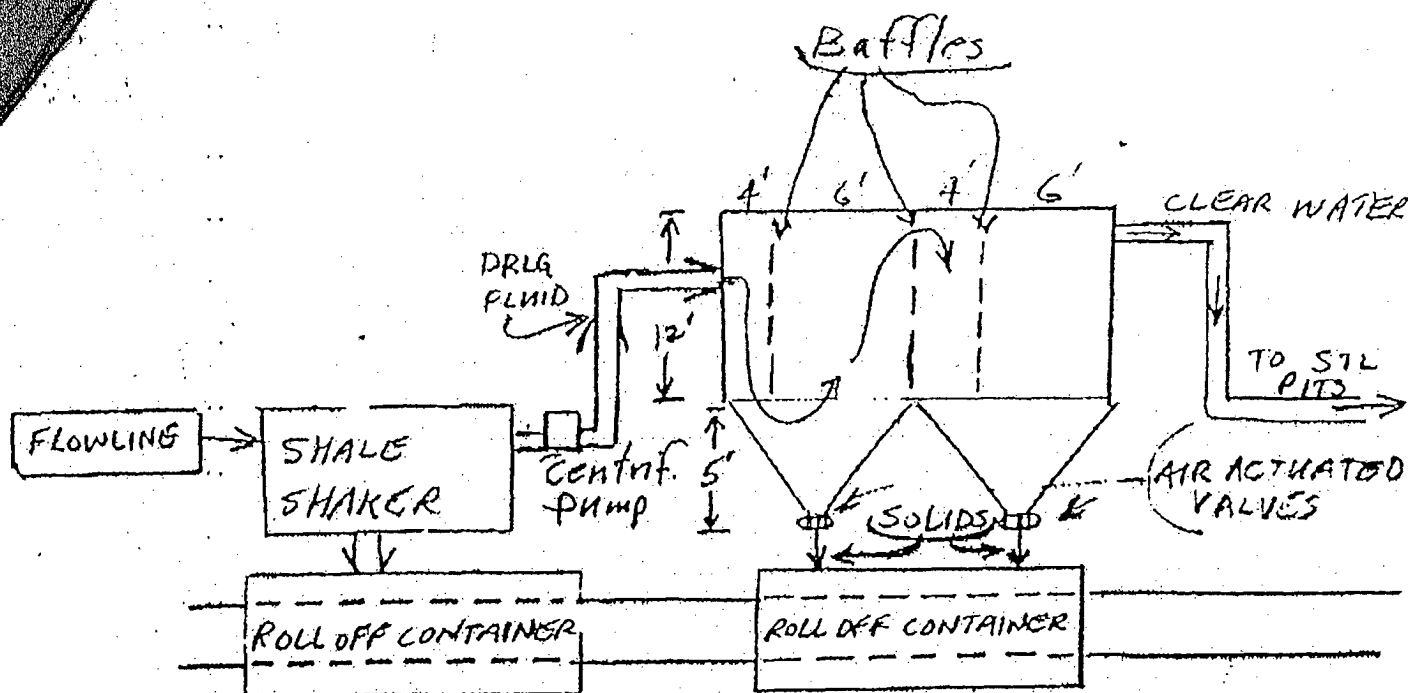 Baffles
4' 6' 4' 6'
CLEAR WATER
DRLG
FLUID
12'
TO STL
PITS
FLOWLINE
SHALE
SHAKER
Centrif.
Pump
5'
AIR ACTUATED
VALVES
SOLIDS
ROLL OFF CONTAINER
ROLL OFF CONTAINER